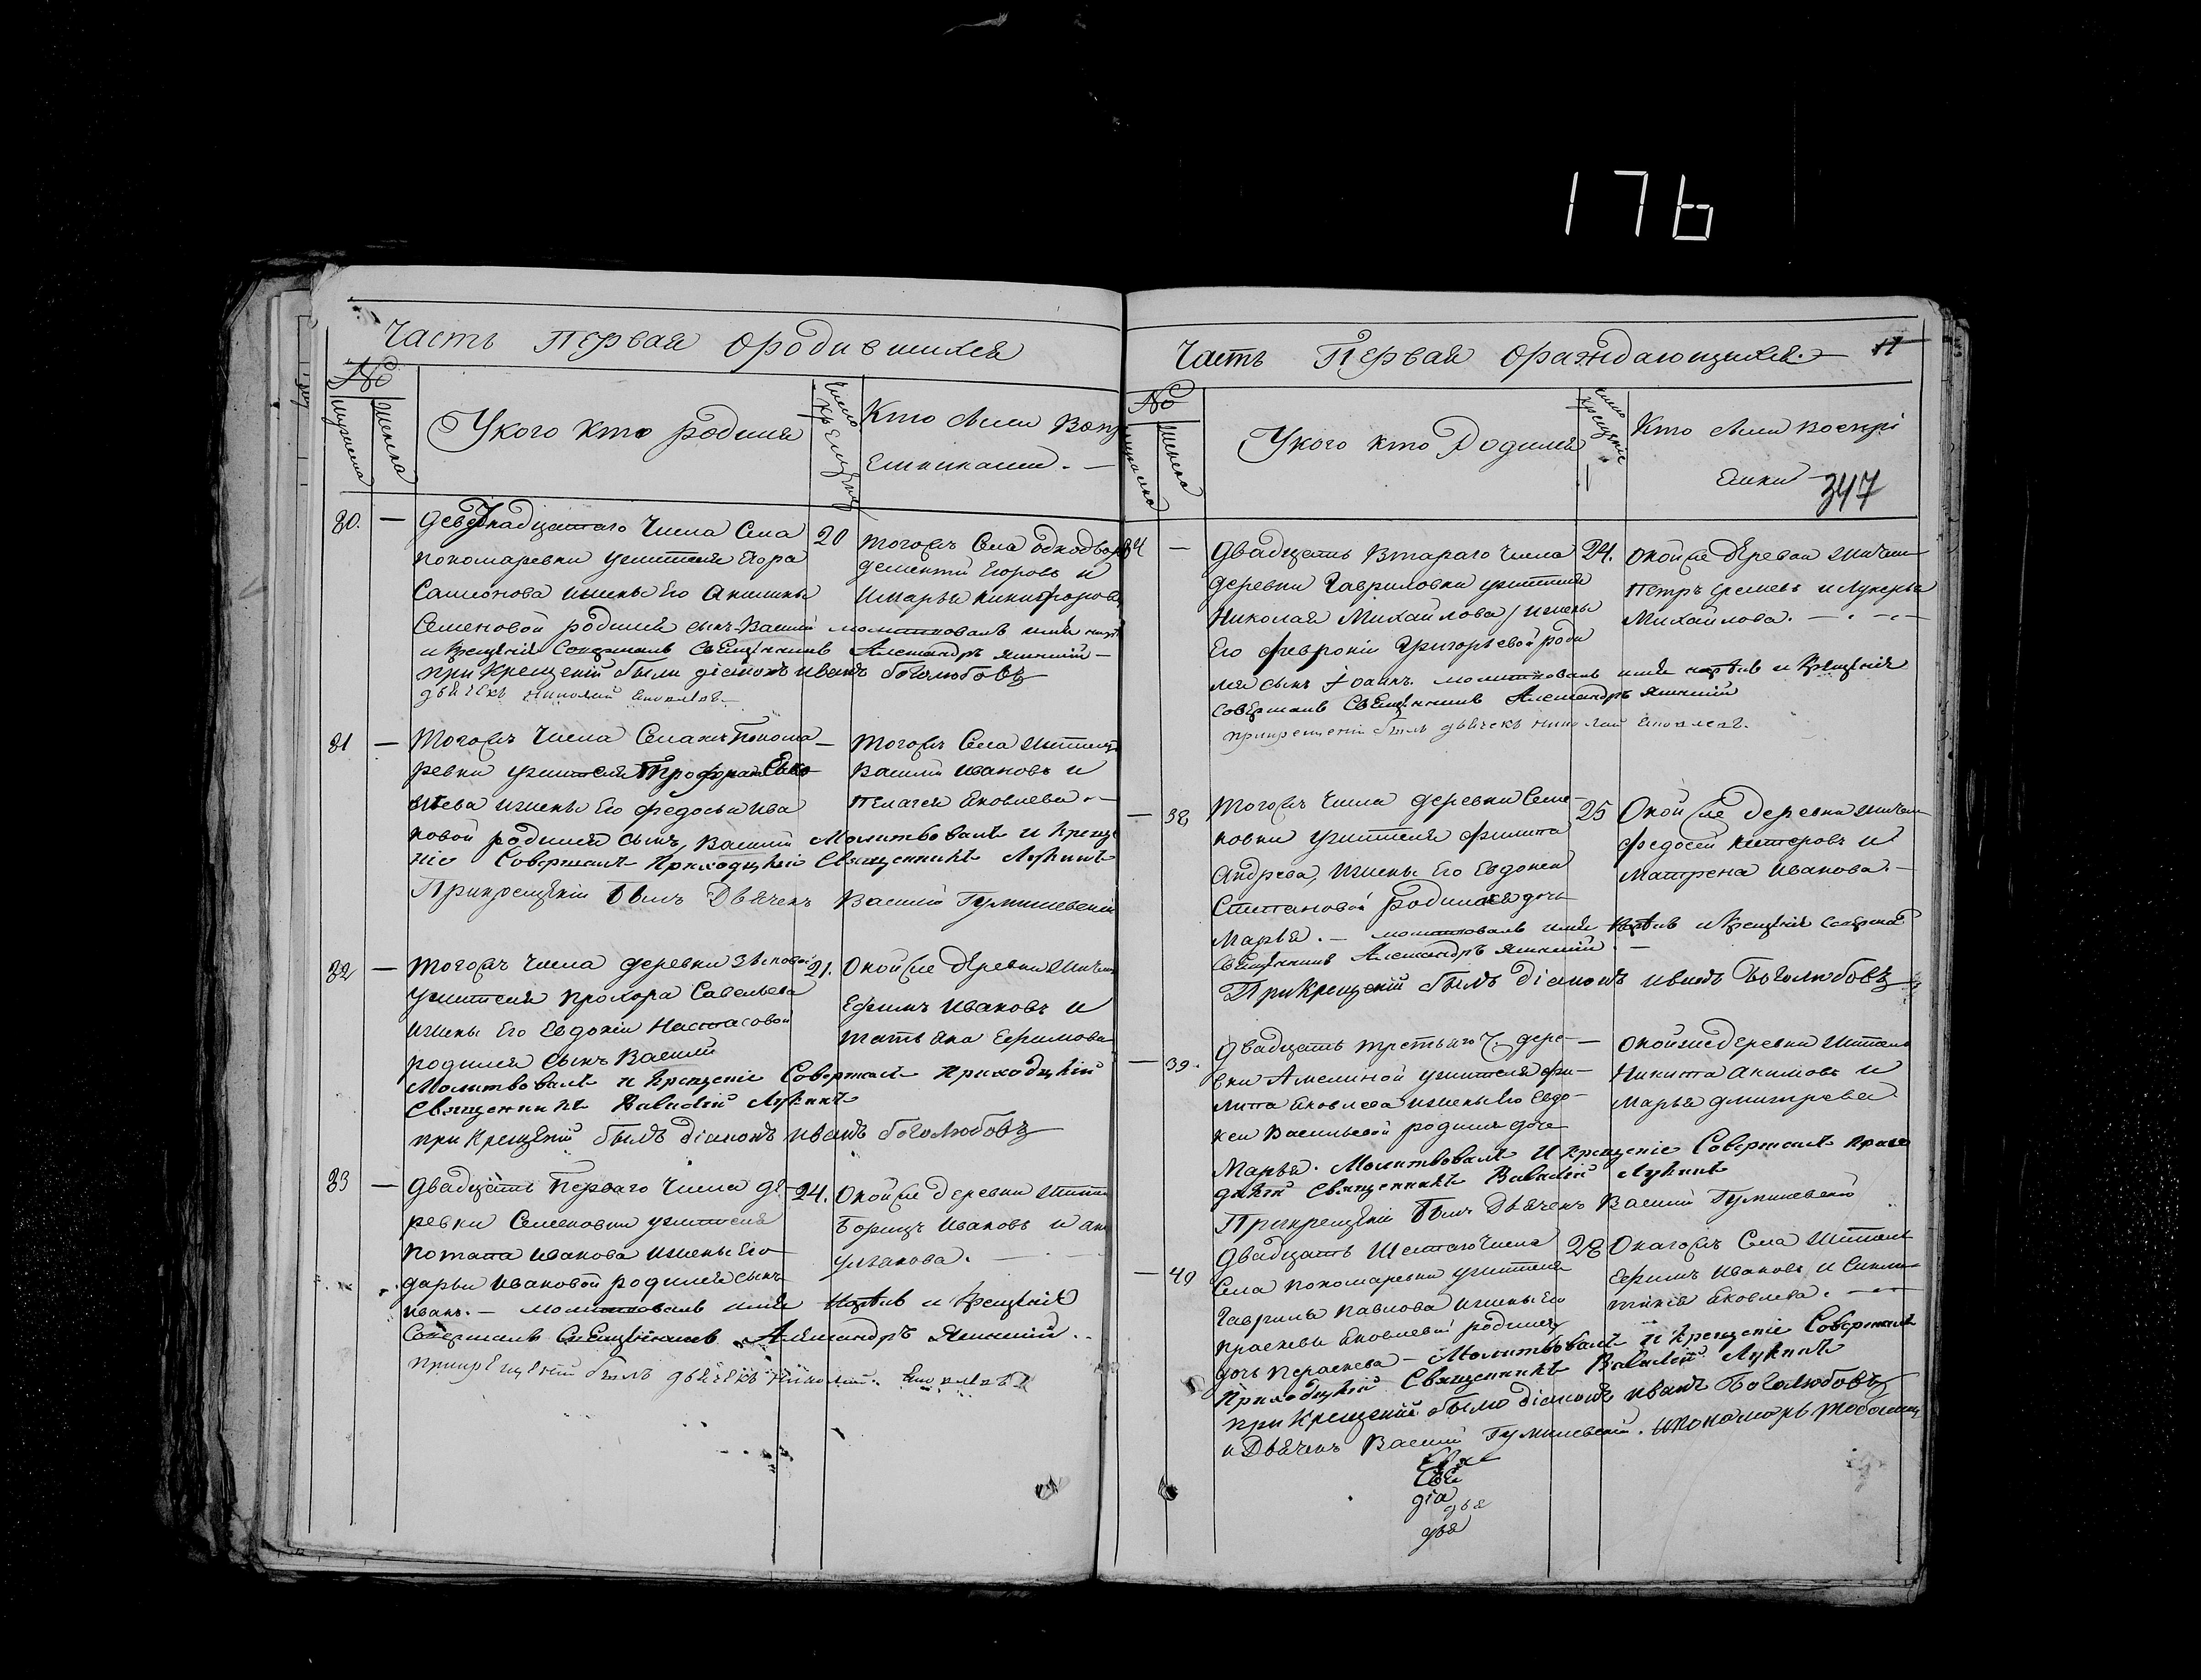 176
Часть Первая О родившихся
№
Мужеска
Женска
У кого кто родился
Число крещения
Кто были Восп
емниками. —
30. —
Села
20
Пономаревки жителя Егора
Самсонова и жены Его Акилины
Семеновой родился сынъ Василий молитвовалъ имя
и крещение Совершалъ Священникъ Александръ
При Крещении были діаконъ Иванъ Боголюбовъ
дьячекъ Николай
Тогожъ Села однодвор
Дементий Егоровъ и
Марья Никифорова
31 —
Тогожъ Числа Села Понома
ревки жителя Трофима
жены Его Федосьи Ива
новой родился Сынъ Василий Молитвовалъ и Креще
ніе Совершалъ Приходскій Священникъ Лукинъ
При крещеніи былъ Дьячекъ Василий Гумилевский
Тогожъ Села Жители
Василий Ивановъ и
Пелагея Яковлева. —
32 —
Тогожъ Числа деревни
21.
жителя Прохора Савельева
жены Его Евдокіи
родился Сынъ Василий
Молитвовалъ и Крещеніе Совершалъ Приходскій
Священникъ Василій Лукинъ
при Крещеніи былъ діаконъ Иванъ Боголюбовъ
Окой же деревни Жители
Ефимъ Ивановъ и
Татьяна Ефимова
33 —
Двадцать Перваго Числа де-
24.
ревни Семеновки жителя
Потапа Иванова жены Его
Дарьи Ивановой родился сынъ
Иванъ. — молитвовалъ имя нарѣкъ и Крещеніе
Совершалъ Священникъ Александръ
при крещеніи былъ дьячекъ Николай
Окой же деревни Жители
Борисъ Ивановъ и
Ульянова.
Часть Первая О раждающихся. —
11
№
Мужеска
Женска
У кого кто Родился
Число крещения
Кто были Воспри
емники
347
34 —
Двадцать Втараго Числа
24.
деревни Гавриловки жителя
Николая Михайлова / жены
Его Февроніи Григорьевой роди
лся сынъ Іоаннъ. молитвовалъ имя нарѣкъ и Крещенія
Совершалъ Священникъ Александръ
при крещеніи былъ дьячекъ Николай
Окой же деревни Жители
Петръ и Лукерья
Михайлова. —
— 38
Тогожъ Числа деревни Семе-
25
новки жителя Филипа
Андреева, жены Его Евдокеи
Степановой родилася дочь
Марья. — молитвовалъ имя нарѣкъ и Крещенія Совершалъ
Священникъ Александръ
При Крещеніи былъ діаконъ Иванъ Боголюбовъ
Окой же деревни Жители
Федосей и
Матрена Иванова. —
— 39.
Двадцать третьяго Ч. дере- —
вни Амелиной жителя Фи-
липа Яковлева жены Его Евдо-
кеи Васильевой родилася дочь
Марья. Молитвовалъ и Крещеніе Совершалъ Прихо
дскій Священникъ Василій Лукинъ
При крещеніи былъ Дьячекъ Василій Гумилевскій
Окой же деревни Жители
Никита Акимовъ и
Марья Дмитрева
— 40
Двадцать Шестаго Числа
28
Села Пономаревки жителя
Гаврилы Павлова жены Его
Прасковьи Яковлевой родилась
дочь Параскева — Молитвовалъ и Крещеніе Совершалъ
Приходскій Священникъ Василій Лукинъ
при Крещеніи было діаконъ Иванъ Боголюбовъ
и Дьячекъ Василій Гумилевскій. и пономарь
Окагожъ Села Жители
Ефимъ Ивановъ и
Яковлева. —
Свя
діа
дья
дья